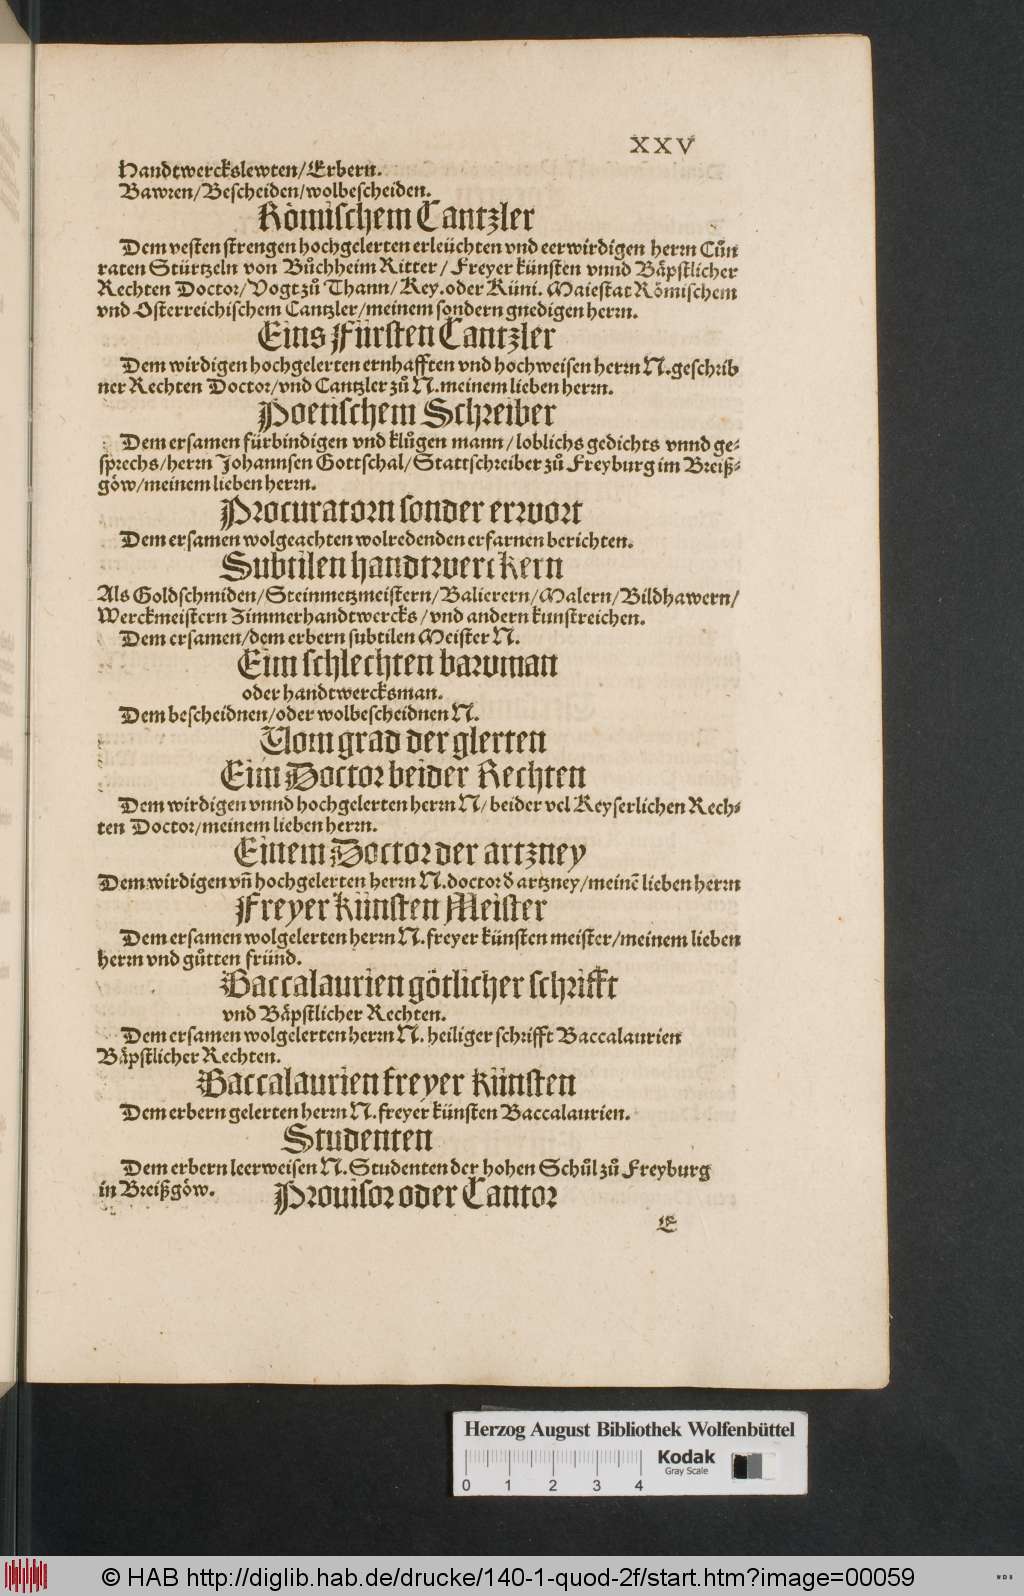 XXV
Handtwerckslewten/Erbern.
Bawren/Bescheiden/wolbescheiden.
Römischem Cantzler
Dem vesten strengen hochgelerten erleüchten vnd eerwirdigen herrn Cůn
raten Stürtzeln von Bůchheim Ritter/ Freyer künsten vnnd Bäpstlicher
Rechten Doctor/Vogt zů Thann/Key.oder Küni. Maiestat Römischem
vnd Osterreichischem Cantzler/meinem sondern gnedigen herrn.
Eins Fürsten Cantzler
Dem wirdigen hochgelerten ernhafften vnd hochweisen herrn N.geschrib
ner Rechten Doctor/vnd Cantzler zů N.meinem lieben herrn.
Poetischem Schreiber
Dem ersamen fürbindigen vnd klůgen mann/loblichs gedichts vnnd ge-
sprechs/herrn Johannsen Gottschal/Stattschreiber zů Freyburg im Breiß-
göw/meinem lieben herrn.
Procuratorn sonder erwort
Dem ersamen wolgeachten wolredenden erfarnen berichten.
Subtilen handtwerckern
Als Goldschmiden/Steinmetzmeistern/Balierern/Malern/Bildhawern/
Werckmeistern Zimmerhandtwercks/vnd andern kunstreichen.
Dem ersamen/dem erbern subtilen Meister N.
Eim schlechten bawman
oder handtwercksman.
Dem bescheidnen/oder wolbescheidnen N.
Vom grad der glerten
Eim Doctor beider Rechten
Dem wirdigen vnnd hochgelerten herrn N/ beider vel Keyserlichen Rech-
ten Doctor/meinem lieben herrn.
Einem Doctor der artzney
Dem wirdigen vñ hochgelerten herrn N.doctor đ artzney/meinē lieben herrn
Freyer künsten Meister
Dem ersamen wolgelerten herrn N.freyer künsten meister/meinem lieben
herrn vnd gůtten fründ.
Baccalaurien götlicher schrifft
vnd Bäpstlicher Rechten.
Dem ersamen wolgelerten herrn N. heiliger schrifft Baccalaurien
Bäpstlicher Rechten.
Baccalaurien freyer künsten
Dem erbern gelerten herrn N.freyer künsten Baccalaurien.
Studenten
Dem erbern leerweisen N.Studenten der hohen Schůl zů Freyburg
in Breißgöw.
Prouisor oder Cantor
E
Herzog August Bibliothek Wolfenbüttel
Kodak
Gray Scale
0 1 2 3 4
© HAB http://diglib.hab.de/drucke/140-1-quod-2f/start.htm?image=00059